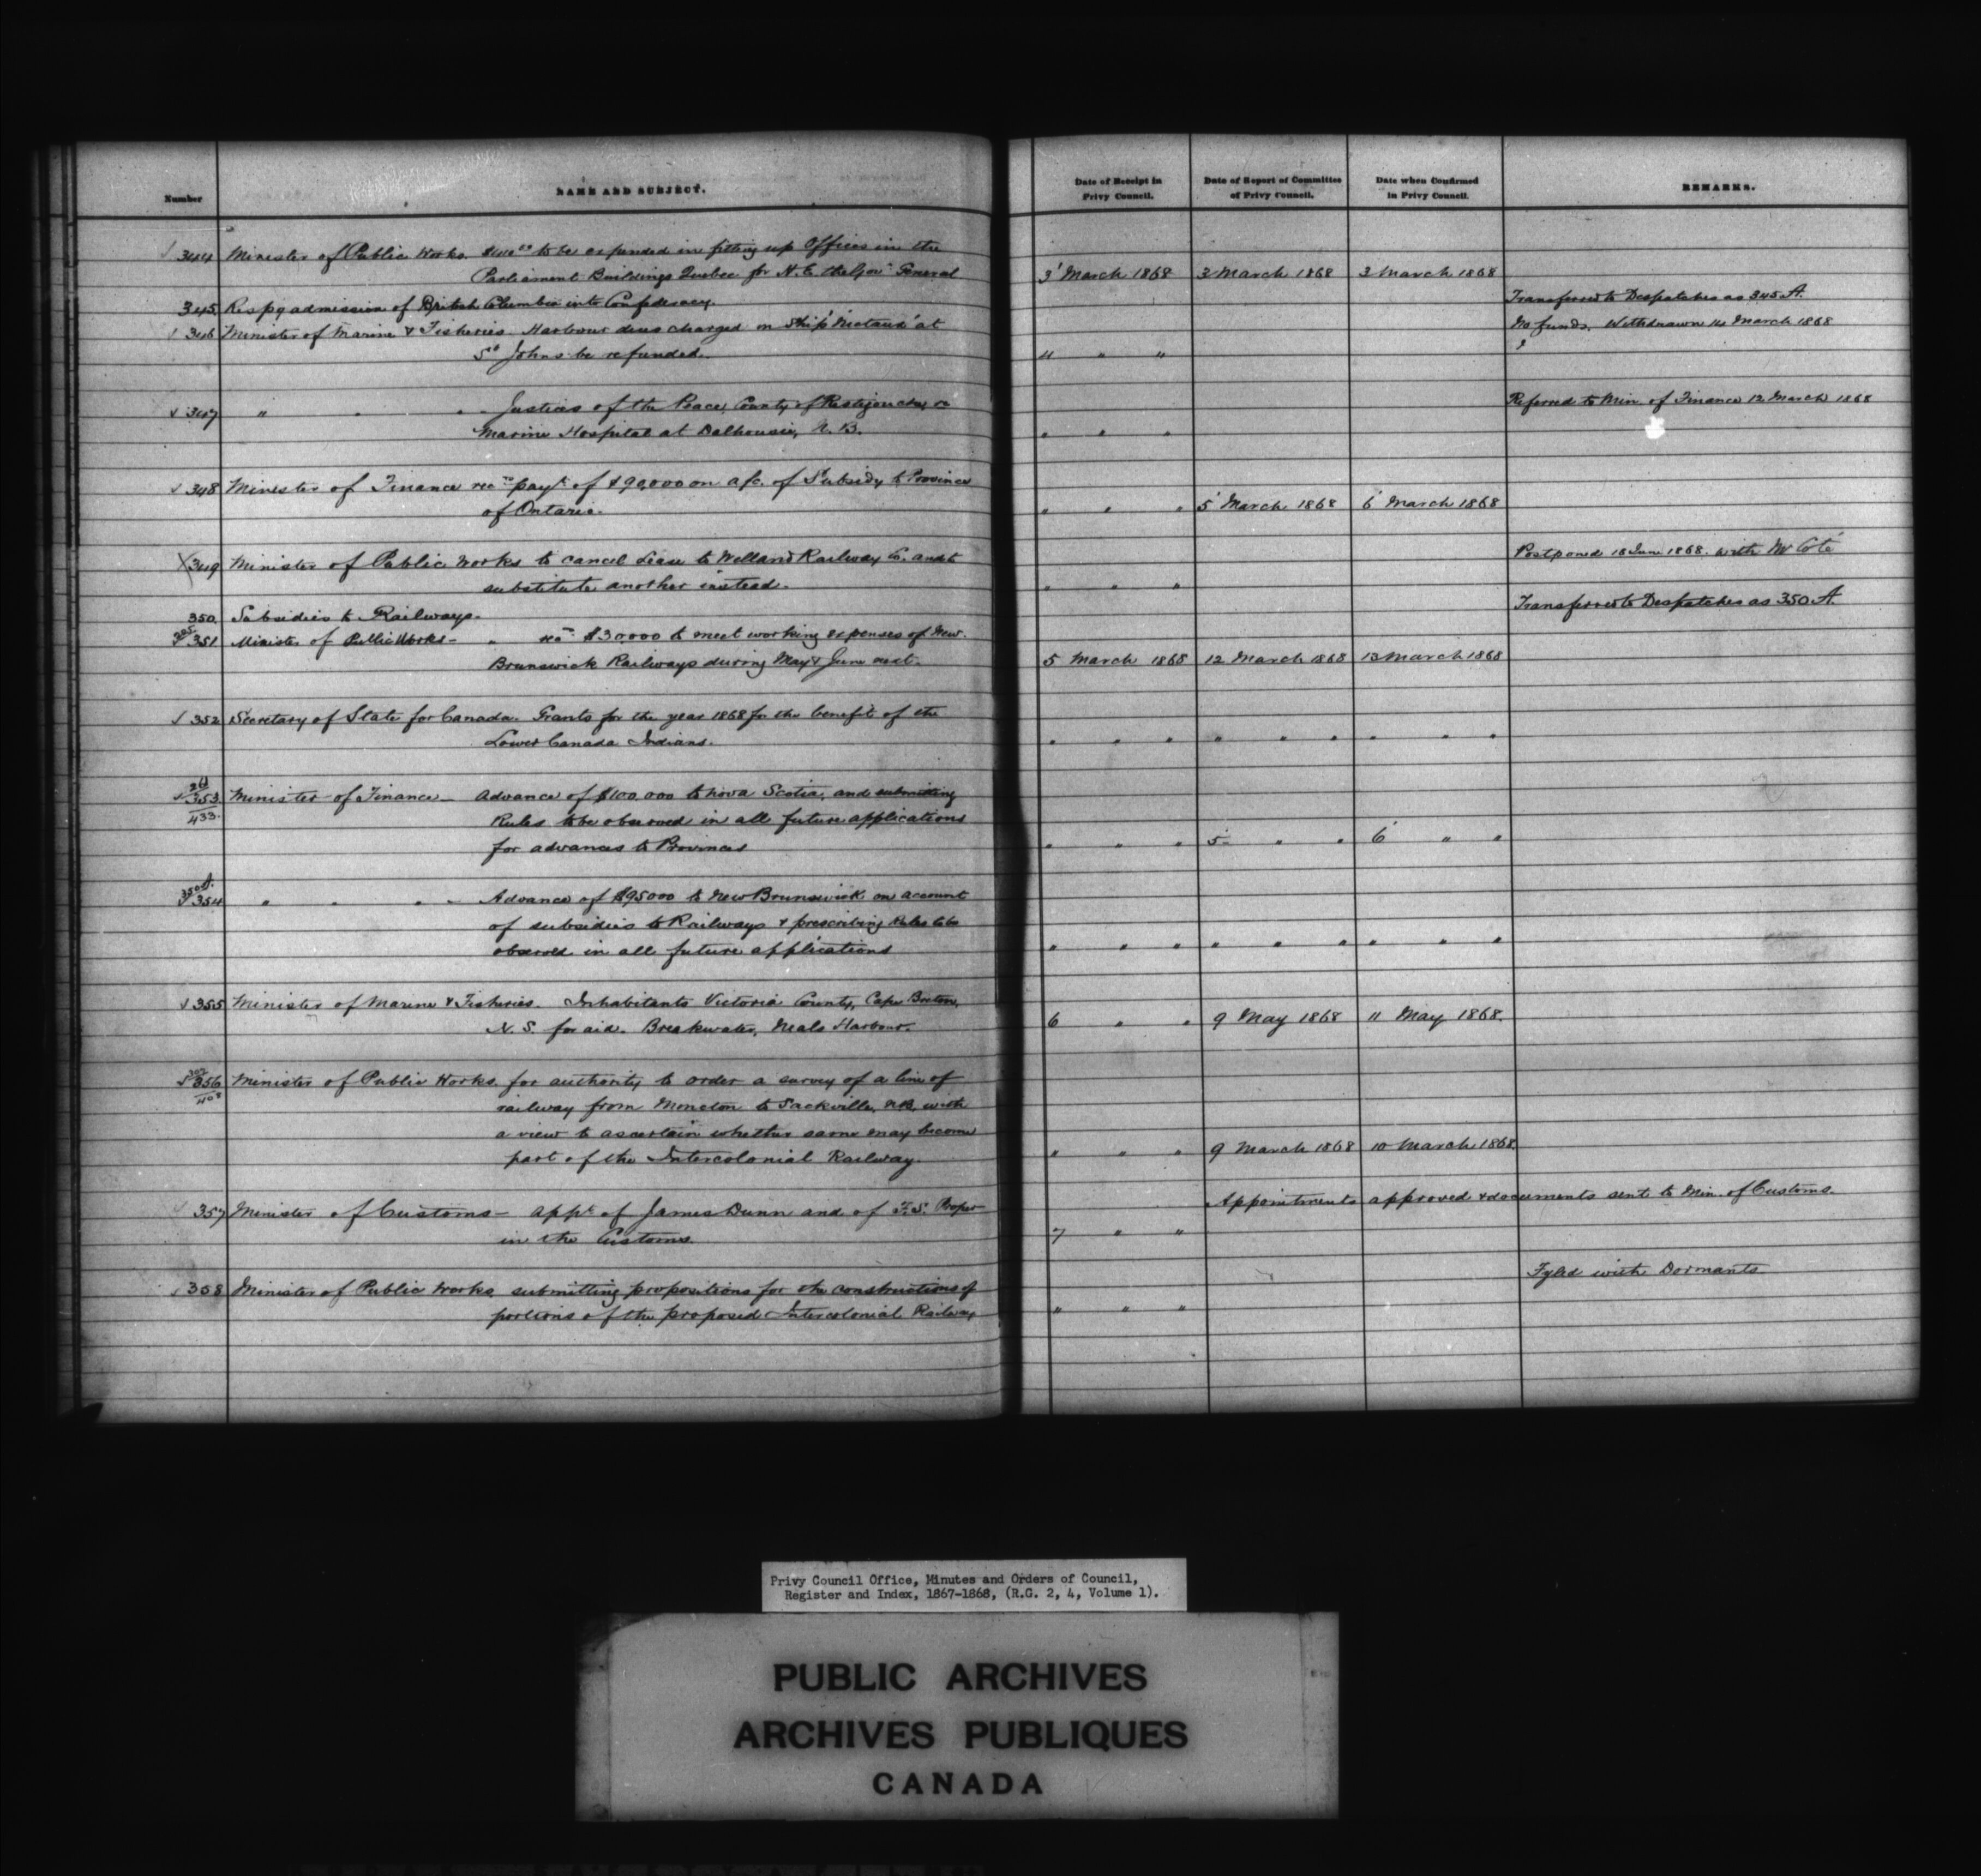 Number NAME AND SUBJECT. Date of Receipt in Privy Council. Date of Report of Committee of Privy Council. Date when Confirmed in Privy Council. REMARKS.
344 Minister of Public Works. to be expended in fitting up Offices in the
Parliament Buildings Quebec for H. E. the Govr General 3' March 1868 3 March 1868 3 March 1868
345. Respg admission of British Columbia into Confederacy. Transferred to Despatches as 345 A.
346 Minister of Marine & Fisheries. Harbour dues charged on Ship at No funds. Withdrawn 14 March 1868
St Johns be refunded. " " "
347 " " " Justices of the Peace, County of Restigouche, re Referred to Min. of Finance 12 March 1868
Marine Hospital at Dalhousie, N. B. " " "
348 Minister of Finance recn payt of $90,000 on a/c. of Subsidy to Province
of Ontario. " " " 5' March 1868 6' March 1868
349 Minister of Public Works to cancel Lease to Welland Railway Co. and to Postponed 18 June 1868. with Mr Coté
substitute another instead. " " "
350. Subsidies to Railways. Transferred to Despatches as 350 A.
351 Minister of Public Works — " $30,000 to meet working expenses of New
Brunswick Railways during May & June next. 5 March 1868 12 March 1868 13 March 1868
352 Secretary of State for Canada. Grants for the year 1868 for the benefit of the
Lower Canada Indians. " " " " " " " " "
26
353 Minister of Finance — Advance of $100,000 to Nova Scotia, and submitting
433. Rules to be observed in all future applications
for advances to Provinces " " " 5 " " 6' " "
350 A.
354 " " " — Advance of $95000 to New Brunswick on account
of subsidies to Railways & prescribing Rules to be
observed in all future applications " " " " " " " " "
355 Minister of Marine & Fisheries. Inhabitants Victoria County, Cape Breton,
N. S. for aid. Breakwater, Neals Harbour. 6 " " 9 May 1868 11 May 1868.
356 Minister of Public Works. for authority to order a survey of a line of
railway from Moncton to Sackville, N.B. with
a view to ascertain whether same may become
part of the Intercolonial Railway. " " " 9 March 1868 10 March 1868.
357 Minister of Customs — appt of James Dunn and of F. S. Appointments approved & documents sent to Min. of Customs.
in the Customs. 7 " "
358 Minister of Public Works submitting propositions for the construction of Fyled with Dormants
portions of the proposed Intercolonial Railway " " "
Privy Council Office, Minutes and Orders of Council,
Register and Index, 1867-1868, (R.G. 2, 4, Volume 1).
PUBLIC ARCHIVES
ARCHIVES PUBLIQUES
CANADA